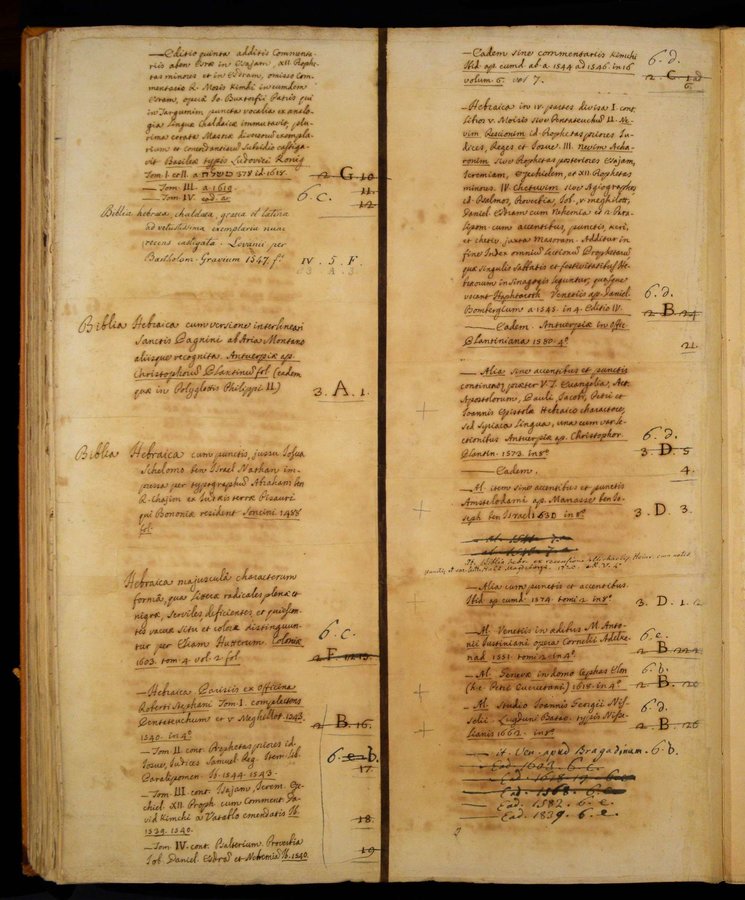 — Editio quinta additis Commenta-
riis aben Ezræ in Esajam, XII. Prophe-
tas minores et in Esdram, omisso Com-
mentario R. Mosis Kimchi in eumdem
Esram, operâ Jo. Buxtorfii Patris qui
in Targumim puncta vocalia ex analo-
gia linguæ Chaldaicæ immutavit, plu-
rima errata Masoræ diversorum exempla-
rium et concordantiarum subsidio castiga-
vit Basileæ typis Ludovici König
Tom. I et II. a. 378 id. 1618. 2. G. 10
— Tom. III. a 1619. 11.
— Tom. IV. eod. a. 6. C. 12
Biblia hebræa, chaldæa, græca et latina
ad vetustissima exemplaria nunc
recens castigata. Lovanii per
Bartholom. Gravium 1547. f.º IV. 5. F.
Biblia Hebraica cum versione interlineari
Sanctis Pagnini ab Aria Montano
aliisque recognita. Antverpiæ ap.
Christophorum Plantinum fol. (eadem
quæ in Polyglottis Philippi II.) 3. A. 1.
Biblia Hebraica cum punctis, jussu Josua
Schelomo ben Israel Nathan im-
pressa per typographum Abraham ben
R. Chajim ex Judæis terræ Pisauri
qui Bononiæ resident Soncini 1488
fol.
Hebraica majusculâ characterum
formâ, qua literæ radicales plenæ et
nigræ, serviles deficientes et quiescen-
tes vacuæ situ et colore distinguun-
tur per Eliam Hutterum. Coloniæ 6. C.
1603. tom. 4. vol. 2 fol.
— Hebraica Parisiis ex officina
Roberti Stephani Tom. I. complectens
Pentateuchum et V. Meghillot. 1543.
1540. in 4º 2. B. 16.
— Tom. II. cont. Prophetas priores id.
Josue, Judices Samuel Reg. Item lib.
Paralipomen. Ib. 1544. 1543. 17.
— Tom. III. cont. Isajam, Jerem. Eze-
chiel. XII. Proph. cum Comment. Da-
vid Kimchi a Vatablo emendatis Ib.
1539. 1540. 18.
— Tom. IV. cont. Psalterium. Proverbia
Job. Daniel. Esdræ et Nehemiæ Ib. 1540. 19
— Eadem sine commentariis Kimchi 6. d.
Ibid. ap. eumd. ab a. 1544 ad 1546. in 16
volum. 6. vol 7.
— Hebraica in IV. partes divisa I. cont.
libros V. Moisis sive Pentateuchum II. Ne-
vim Rescionim id. Prophetas priores Ju-
dices, Reges et Josue. III. Nevim Acha-
ronim sive Prophetas posteriores Esajam,
Jeremiam, Ezechielem, et XII. Prophetas
minores. IV. Chetuvim sive Agiographos
id. Psalmos, Proverbia, Job, V. meghilott,
Daniel. Esdram cum Nehemia et 2. Para-
lipom. cum accentibus, punctis, keri,
et chetiv juxta Masoram. Additur in
fine Index omnium lectionum Propheticarum
quæ singulis Sabbatis et festivitatibus He-
bræorum in Sinagogis leguntur, quasque
vocant Haphtaroth Venetiis ap. Daniel. 6. d.
Bombergium a. 1545. in 4. Editio IV. 2. B. 24
— Eadem. Antverpiæ in Offic.
Plantiniana 1580. 4º 21.
— Alia sine accentibus et punctis
continens, præter V. T. Evangelia, Act.
Apostolorum, Pauli, Jacobi, Petri et
Joannis Epistolæ Hebraico charactere,
sed Syriaca lingua, una cum varie-
ctionibus Antverpiæ ap. Christophor. 6. d.
Plantin. 1573. in 8º 3. D. 5
— Eadem. 4.
— Al. item sine accentibus et punctis
Amstelodami ap. Manasse ben Jo-
seph ben Israel 1630 in 8º 3. D. 3.
It. Biblia hebr. ex recensione
— Alia cum punctis et accentibus.
Ibid. ap. eumd. 1574. tomi 2. in 8º 3. D. 1. 2
— Al. Venetiis in ædibus M. Anto-
nii Justiniani opera Cornelii Adelke- 6. e.
nad. 1551. tomi 2. in 4º
— Al. Genevæ in domo Cephas Elon 6. b.
(h. e. Petri Querretani) 1618. in 4º 2. B. 20
— Al. studio Joannis Georgii Nis-
selii. Lugduni Batav. typis Nisse- 6. d.
lianis 1662. in 8º 2. B. 126
— it. Ven. apud Bragadinum. 6. b.
— Ead. 1603. 6. e.
— Ead. 1568. 6. e.
— Ead. 1582. 6. e.
— Ead. 1839. 6. e.